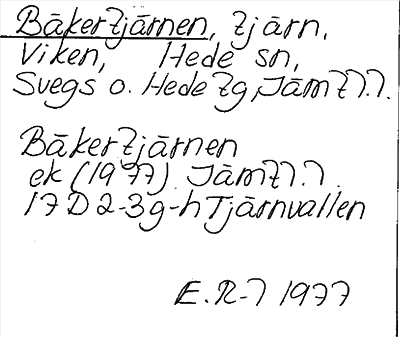 Båkertjärnen, tjärn,
Viken, Hede sn,
Svegs o. Hede tg, Jämtl.l.
Båkertjärnen
ek (1977) Jämtl.l.
17D 2-3g-h Tjärnvallen
E.R-l 1977